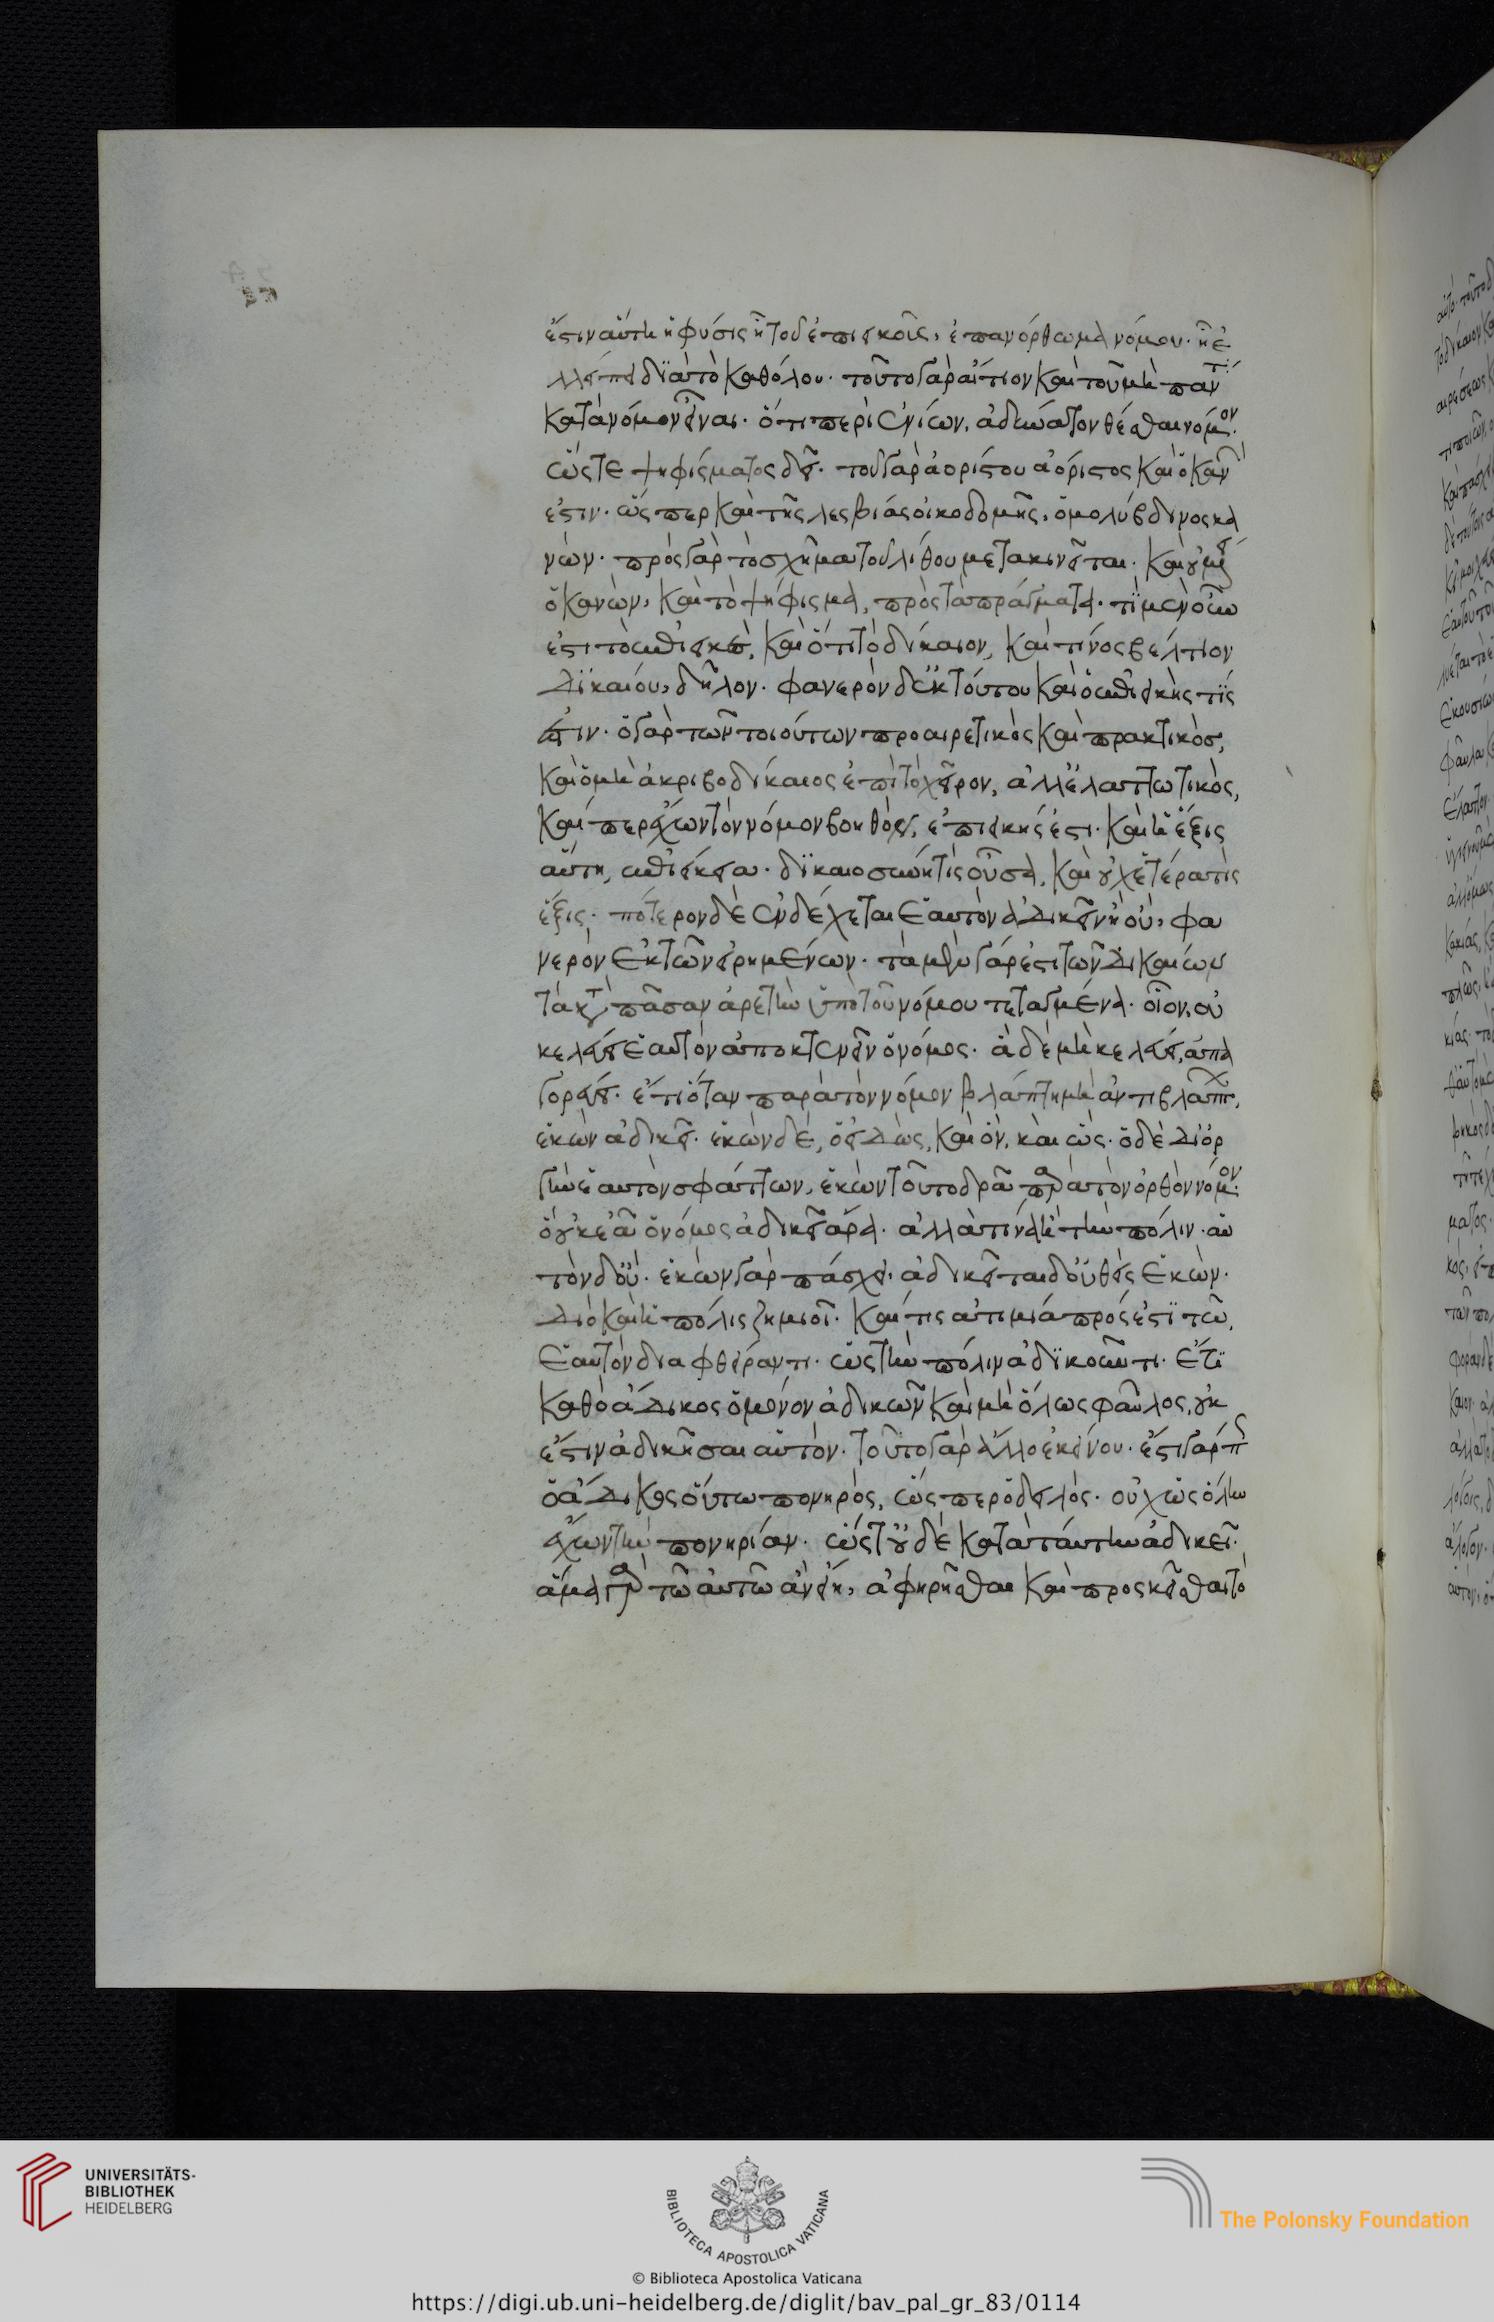 ἔστιν αὕτη ἡ φύσις ἡ τοῦ ἐπιεικοῖς, ἐπανόρθωμα νόμου. ᾗ ἐ
λλείπει διὰ τὸ καθόλου. τοῦτο γὰρ αἴτιον καὶ τοῦ μὴ πάντ
κατὰ νόμον εἶναι. ὅτι περὶ ἐνίων, ἀδύνατον θέσθαι νόμον.
ὥστε ψηφίσματος δεῖ. τοῦ γὰρ ἀορίστου ἀόριστος καὶ ὁ κανὼν
ἐστιν. ὥσπερ καὶ τῆς λεσβιάς οἰκοδομῆς, ὁ μολύβδινος κα
νών. πρὸς γὰρ τὸ σχῆμα τοῦ λίθου μετακινεῖται. καὶ οὐ μένει
ὁ κανὼν, καὶ τὸ ψήφισμα, πρὸς τὰ πράγματα. τί μὲν οὖν
ἐστι τὸ ἐπιεικὲς, καὶ ὅτι τὸ δίκαιον, καὶ τινὸς βέλτιον
δικαίου, δῆλον. φανερὸν δ' ἐκ τούτου καὶ ὁ ἐπιεικὴς τίς
ἐστιν. ὁ γὰρ τῶν τοιούτων προαιρετικὸς καὶ πρακτικὸς,
καὶ ὁ μὴ ἀκριβοδίκαιος ἐπὶ τὸ χεῖρον, ἀλλ' ἐλαττωτικὸς,
καίπερ ἔχων τὸν νόμον βοηθὸν, ἐπιεικής ἐστι. καὶ ἡ ἕξις
αὕτη, ἐπιείκεια. δικαιοσύνη τὶς οὖσα, καὶ οὐχ ἑτέρα τὶς
ἕξις. πότερον δὲ ἐνδέχεται ἑαυτὸν ἀδικεῖν ἢ οὐ, φα
νερὸν ἐκ τῶν εἰρημένων. τὰ μὲν γάρ ἐστι τῶν δικαίων
τὰ κατὰ πᾶσαν ἀρετὴν ὑπὸ τοῦ νόμου τεταγμένα. οἷον, οὐ
κελεύει ἑαυτὸν ἀποκτενεῖν ὁ νόμος. ἃ δὲ μὴ κελεύει, ἀπα
γορεύει. ἔτι ὅταν παρὰ τὸν νόμον βλάπτῃ μὴ ἀντιβλάπτων,
ἑκὼν ἀδικεῖ. ἑκὼν δὲ, ὁ εἰδὼς, καὶ ὃν, καὶ ὥς. ὁ δὲ δι' ὀρ
γὴν ἑαυτὸν σφάττων, ἑκὼν τοῦτο δρᾶ παρὰ τὸν ὀρθὸν νόμον.
ὃ οὐκ ἐᾶ ὁ νόμος ἀδικεῖ ἄρα. ἀλλὰ τίνα ἢ τὴν πόλιν. αὑ
τὸν δ' οὔ. ἑκὼν γὰρ πάσχει, ἀδικεῖται δ' οὐθεὶς ἑκών.
διὸ καὶ ἡ πόλις ζημιοῖ. καί τις ἀτιμία πρόσεστι τῶ,
ἑαυτὸν διαφθείραντι. ὡς τὴν πόλιν ἀδικοῦντι. ἔτι
καθὸ ἄδικος ὁ μόνον ἀδικῶν καὶ μὴ ὅλως φαῦλος, οὐκ
ἔστιν ἀδικῆσαι αὑτόν. τοῦτο γὰρ ἄλλο ἐκείνου. ἔστι γάρ πως
ὁ ἄδικος οὕτω πονηρὸς, ὥσπερ ὁ δειλὸς. οὐχ ὡς ὅλην
ἔχων τὴν πονηρίαν. ὥστ' οὐδὲ κατὰ ταύτην ἀδικεῖ.
ἅμα γὰρ τῶ αὐτῶ ἂν εἴη, ἀφῃρῆσθαι καὶ προσκεῖσθαι τὸ
UNIVERSITÄTS-
BIBLIOTHEK
HEIDELBERG
BIBLIOTECA APOSTOLICA VATICANA
The Polonsky Foundation
© Biblioteca Apostolica Vaticana
https://digi.ub.uni-heidelberg.de/diglit/bav_pal_gr_83/0114